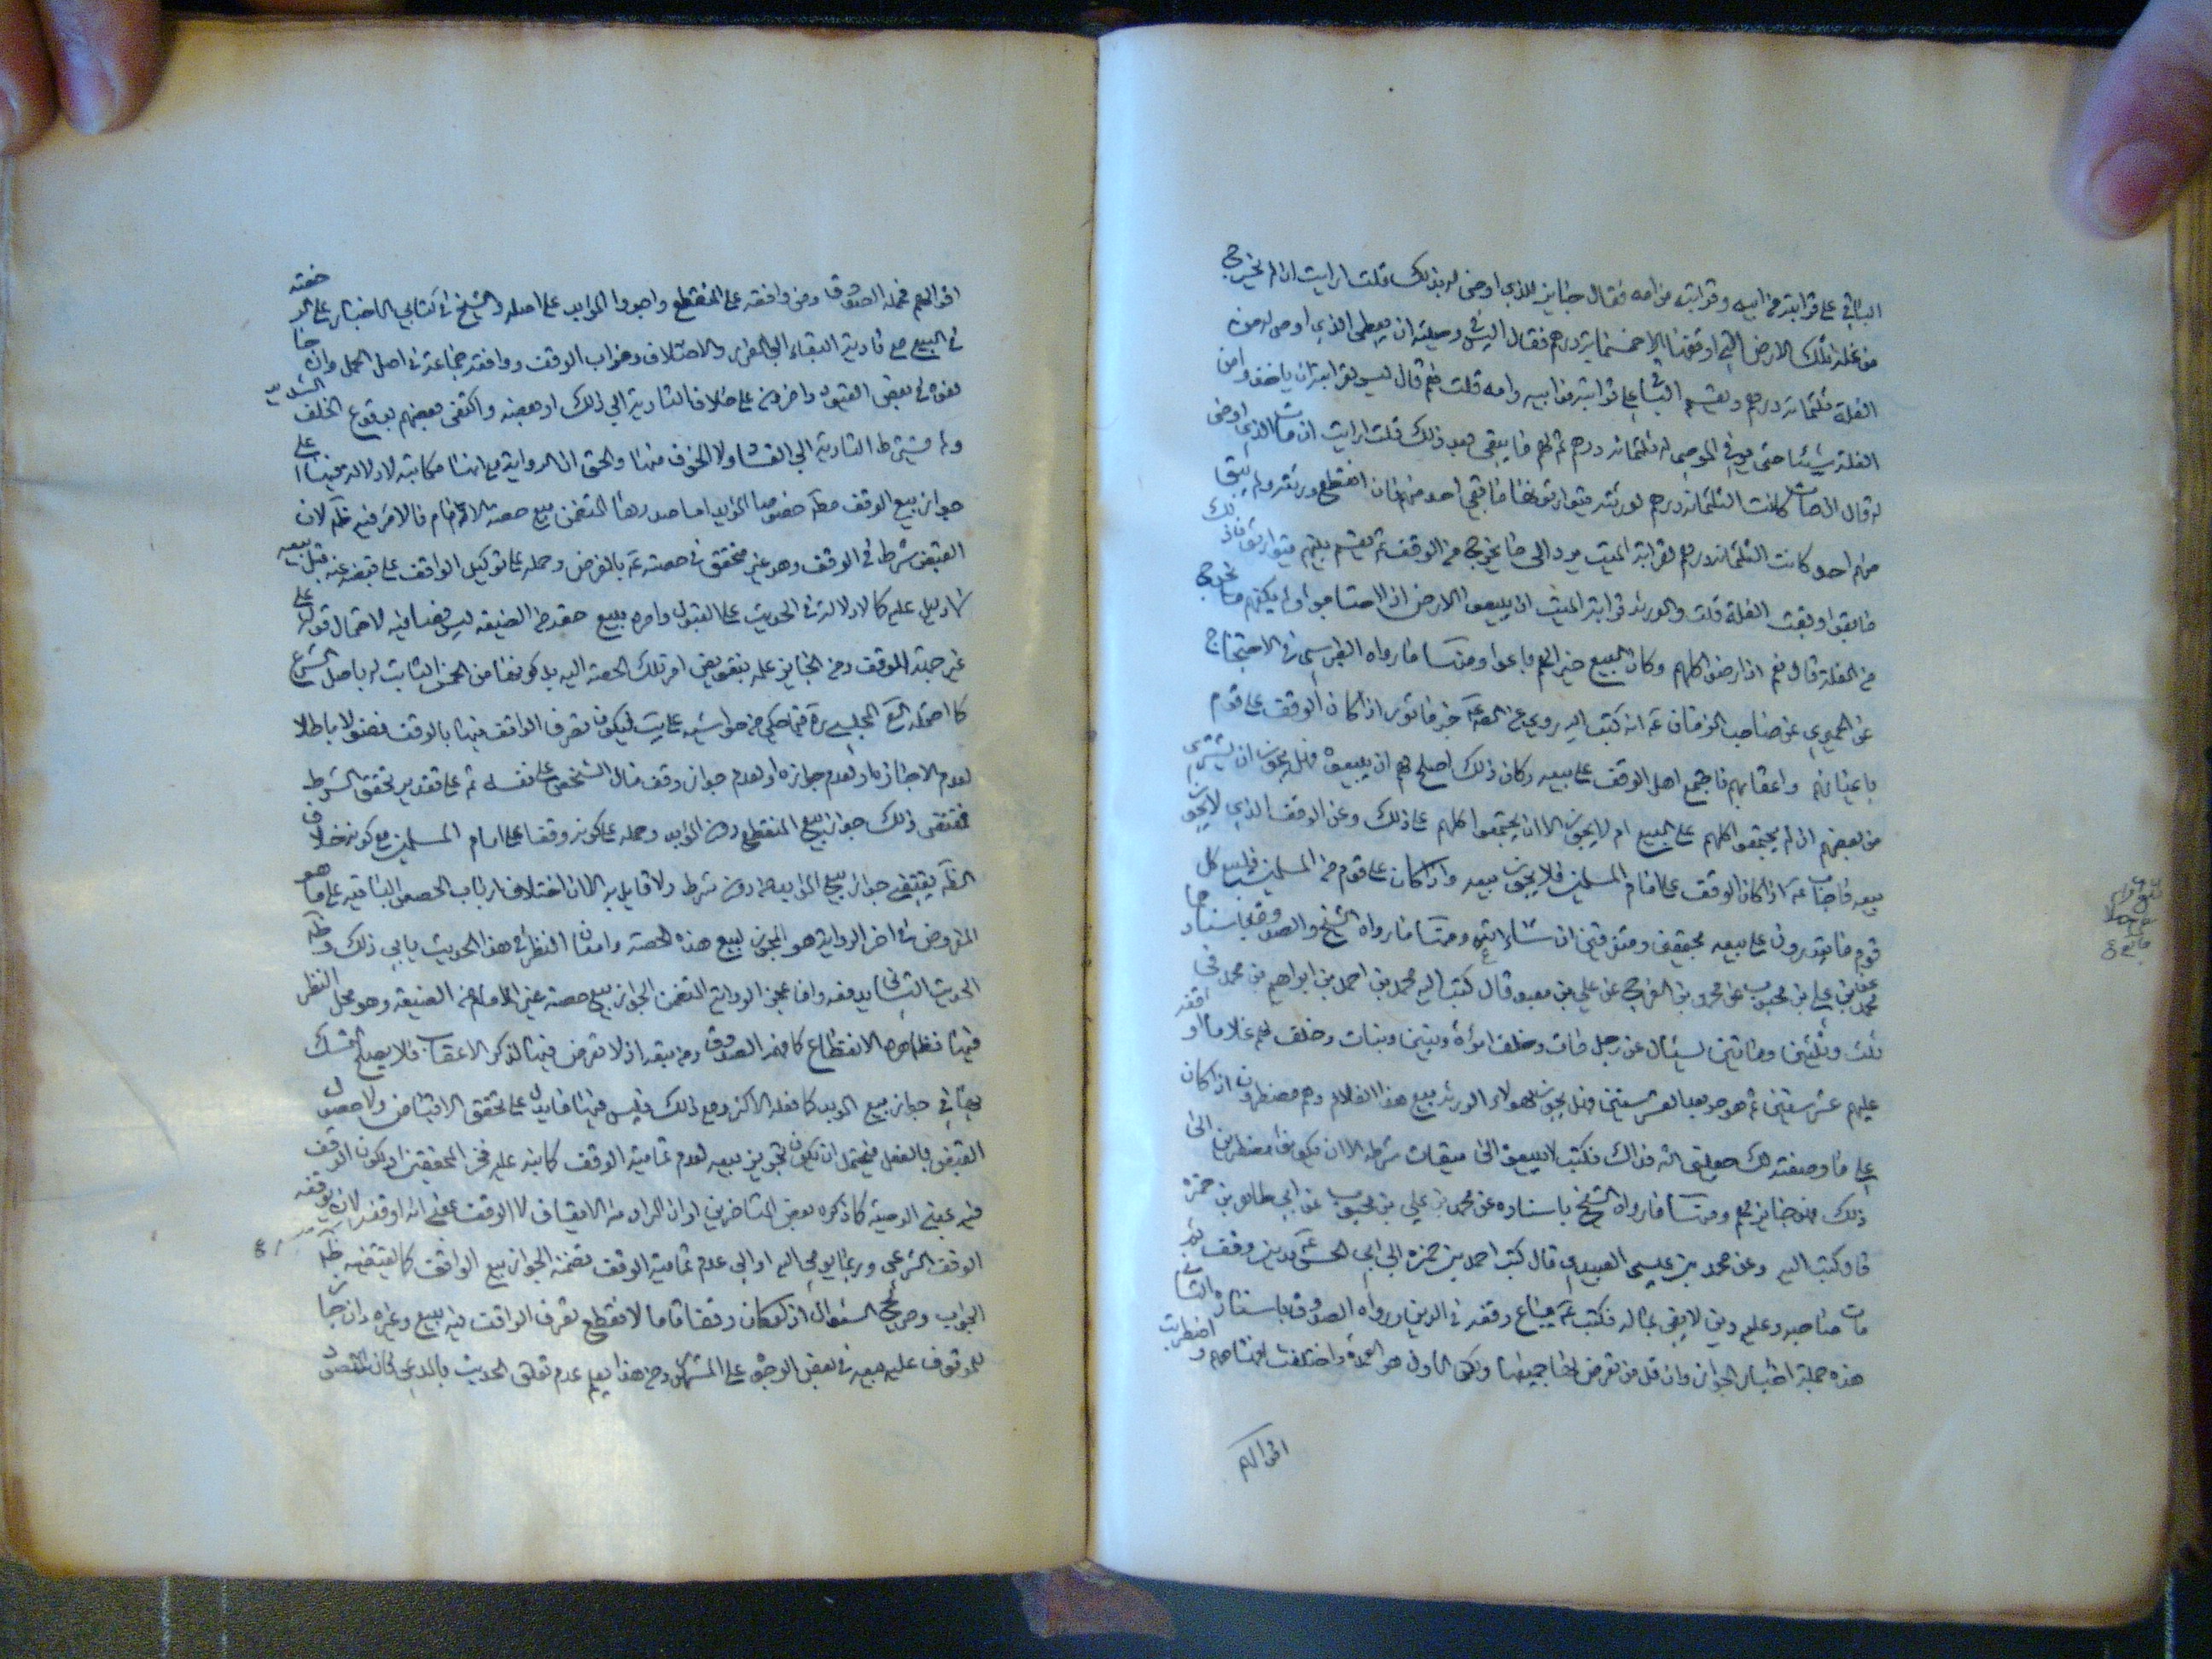 الباقي على قرابته من ابيه وقرابته من امه فقال جايز للذي اوصى له بذلك قلت ارايت ان لم يخرج
من غلة تلك الارض التي اوقفها الا خمسمائة درهم فقال اليس في وصيته ان يعطى الذي اوصى له من
الغلة ثلثمائة درهم ويقسم الباقي على قرابته من ابيه وامه قلت نعم قال ليس لقرابته ان ياخذوا من
الغلة شيئا حتى يوفى الموصى له ثلثمائة درهم ثم لهم ما يبقى بعد ذلك قلت ارايت ان مات الذي اوصى
له قال ان مات كانت الثلثمائة درهم لورثته يتوارثونها ما بقي احد منهم فان انقطع ورثته ولم يبق
منهم احد كانت الثلثمائة درهم لقرابة الميت يرد الى ما يخرج من الوقف ثم يقسم بينهم يتوارثون ذلك
ما بقوا وبقيت الغلة قلت وللورثة قرابة الميت ان يبيعوا الارض اذا احتاجوا ولم يكفهم ما يخرج
من الغلة قال نعم اذا رضوا كلهم وكان البيع خيرا لهم باعوا ومنها ما رواه الطبرسي في الاحتجاج
عن الحميري عن صاحب الزمان انه كتب اليه روي عن خبر ماثور اذا كان الوقف على قوم
باعيانهم واعقابهم فاجتمع اهل الوقف على بيعه وكان ذلك اصلح لهم ان يبيعوه فهل يجوز ان يشترى
من بعضهم ان لم يجتمعوا كلهم على البيع ام لا يجوز الا ان يجتمعوا كلهم على ذلك وعن الوقف الذي لا يجوز
بيعه فاجاب اذا كان الوقف على امام المسلمين فلا يجوز بيعه واذا كان على قوم من المسلمين فليبع كل
قوم ما يقدرون على بيعه مجتمعين ومتفرقين ان شاء الله ومنها ما رواه الشيخ والصدوق باسنادهما
محمد بن علي بن محبوب عن محمد بن الفرج عن علي بن معبد قال كتب اليه محمد بن احمد بن ابراهيم بن محمد في
ثلث وثلثين ومائتين يساله عن رجل مات وخلف امراة وبنين وبنات وخلف لهم غلاما اوقفه
عليهم عشر سنين ثم هو حر بعد العشر سنين فهل يجوز لهؤلاء الورثة بيع هذا الغلام وهم مضطرون اذا كان
على ما وصفته لك جعلني الله فداك فكتب لا يبيعونه الى ميقات شرطه الا ان يكونوا مضطرين الى
ذلك فهو جايز لهم ومنها ما رواه الشيخ باسناده عن محمد بن علي بن محبوب عن ابي طاهر بن حمزة
انه كتب اليه وعن محمد بن عيسى العبيدي قال كتب احمد بن حمزة الى ابي الحسن مدين وقف ثم
مات صاحبه وعليه دين لا يفي بماله فكتب يباع وقفه في الدين ورواه الصدوق باسناده
هذه جملة اخبار الجواز وان قل من تعرض لها جميعها ولكن الاول هو العمدة واختلفت افهامهم واضطربت
اقوالهم
اقوالهم فحمله الصدوق ومن وافقه على المنقطع واجروا المؤبد على اصله والشيخ في كتابي الاخبار على الرخصة
في البيع مع تادية البقاء الى الضرر والاختلاف وخراب الوقف ووافقه جماعة في اصل الحمل وان خا
لفوه في بعض القيود واخرون على خلاف التادية الى ذلك او بعضه واكتفى بعضهم بوقوع الخلف الشديد
ولم يشترط التادية الى الفساد ولا الخوف منها والحق ان الرواية مع انها مكاتبة لا دلالة فيها على
جواز بيع الوقف خصوصا المؤبد اما صدرها المتضمن بيع حصة الامام فالامر فيه لان
القبض شرط في الوقف وهو غير متحقق في حصته بالفرض وحمله على توكيل الواقف على قبضه عنه قبل بيعه
لا دليل عليه كما لا دلالة في الحديث على القبول وامره ببيع حقه من الضيعة ليس نصا فيه لاحتمال قوله على
غير جهة الوقف ومن الجايز علمه بتفويض امر تلك الحصة اليه بل كونها من الحق الثابت له باصل الشرع
كما احتمله المجلسي فيما حكي من حواشيه ليكون تصرف الواقف فيها بالوقف فضوليا باطلا
لعدم الاجازة او لعدم جوازه او لعدم جواز وقف مال الشخص على نفسه ثم على تقدير تحقق الشرط
فمقتضى ذلك جواز بيع المنقطع دون المؤبد وحمله على كونه وقفا على امام المسلمين مع كونه خلاف
يقتضي جواز بيع المؤبد دون شرط ولا قايل به الا ان اختلاف ارباب الحصص الباقية على ما هو
المفروض في اخر الرواية هو المجوز لبيع هذه الحصة وامعان النظر في هذا الحديث يابى ذلك
الحديث الثاني يدفعه واما عجز الرواية المتضمن لجواز بيع حصة غير الامام من الضيعة وهو محل النظر
فيها فظاهره الانقطاع كما فهمه الصدوق ومن تبعه اذ لا تعرض فيها لذكر الاعقاب فلا يصلح التمسك
بها في جواز بيع المؤبد كما فعله الاكثر ومع ذلك فليس فيها ما يدل على تحقق الاقباض ولا حصول
القبض بالفعل فيحتمل ان يكون تجويز بيعه لعدم تمامية الوقف كما نبه عليه فخر المحققين او يكون الوقف
فيه بمعنى الوصية كما ذكره بعض المتاخرين او ان المراد منه الايقاف لا الوقف بمعنى انه اوقفه لان يوقفه
الوقف الشرعي وربما يومي اليه او الى عدم تمامية الوقف تضمنه الجواز بيع الواقف كما يقتضيه
الجواب وصريح السؤال اذ لو كان وقفا تاما لانقطع تصرف الواقف فيه ببيع وغيره وان جاز
للموقوف عليه بيعه في بعض الوجوه على المشهور ومن هذا يعلم عدم تعلق الحديث بالمدعى فان المقصود